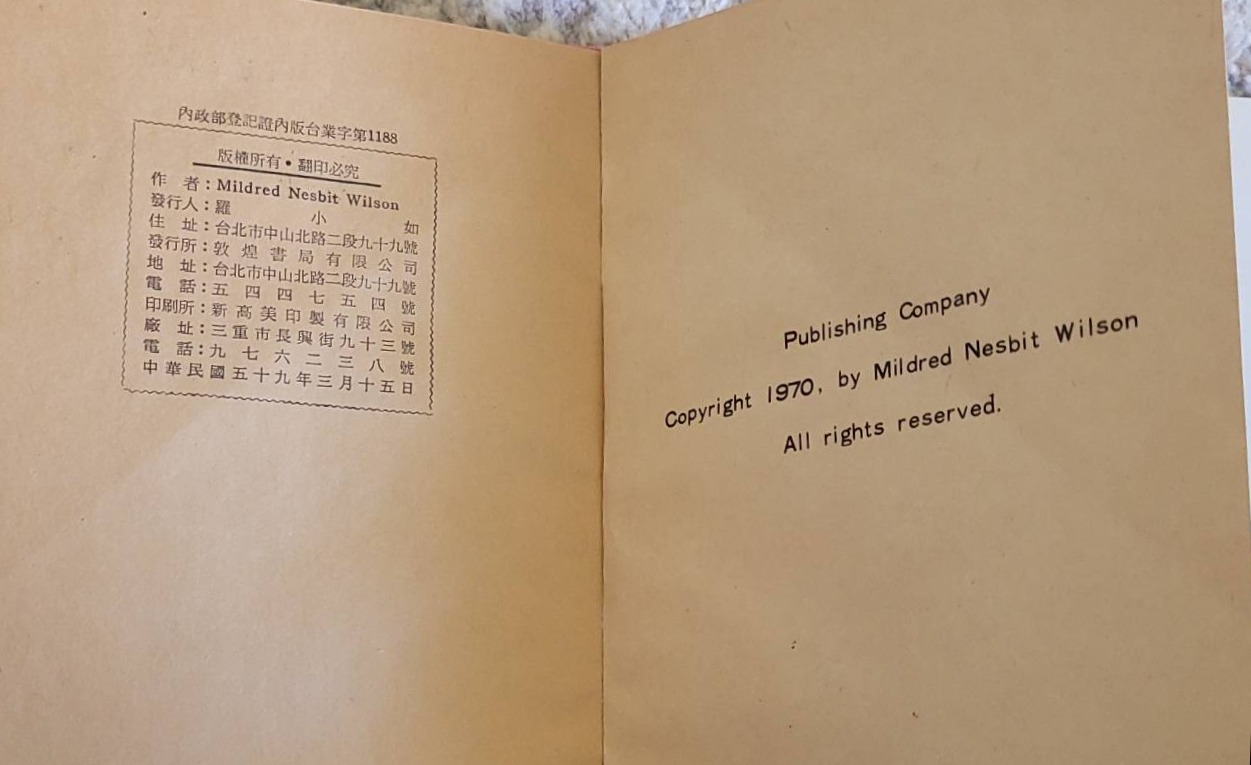 內政部登記證內版台業字第1188
版權所有•翻印必究
作 者：Mildred Nesbit Wilson
發行人：羅 小 如
住 址：台北市中山北路二段九十九號
發行所：敦煌書局有限公司
地 址：台北市中山北路二段九十九號
電 話：五四四七五四號
印刷所：新高美印製有限公司
廠 址：三重市長興街九十三號
電 話：九七六二三八號
中華民國五十九年三月十五日
Publishing Company
Copyright 1970, by Mildred Nesbit Wilson
All rights reserved.